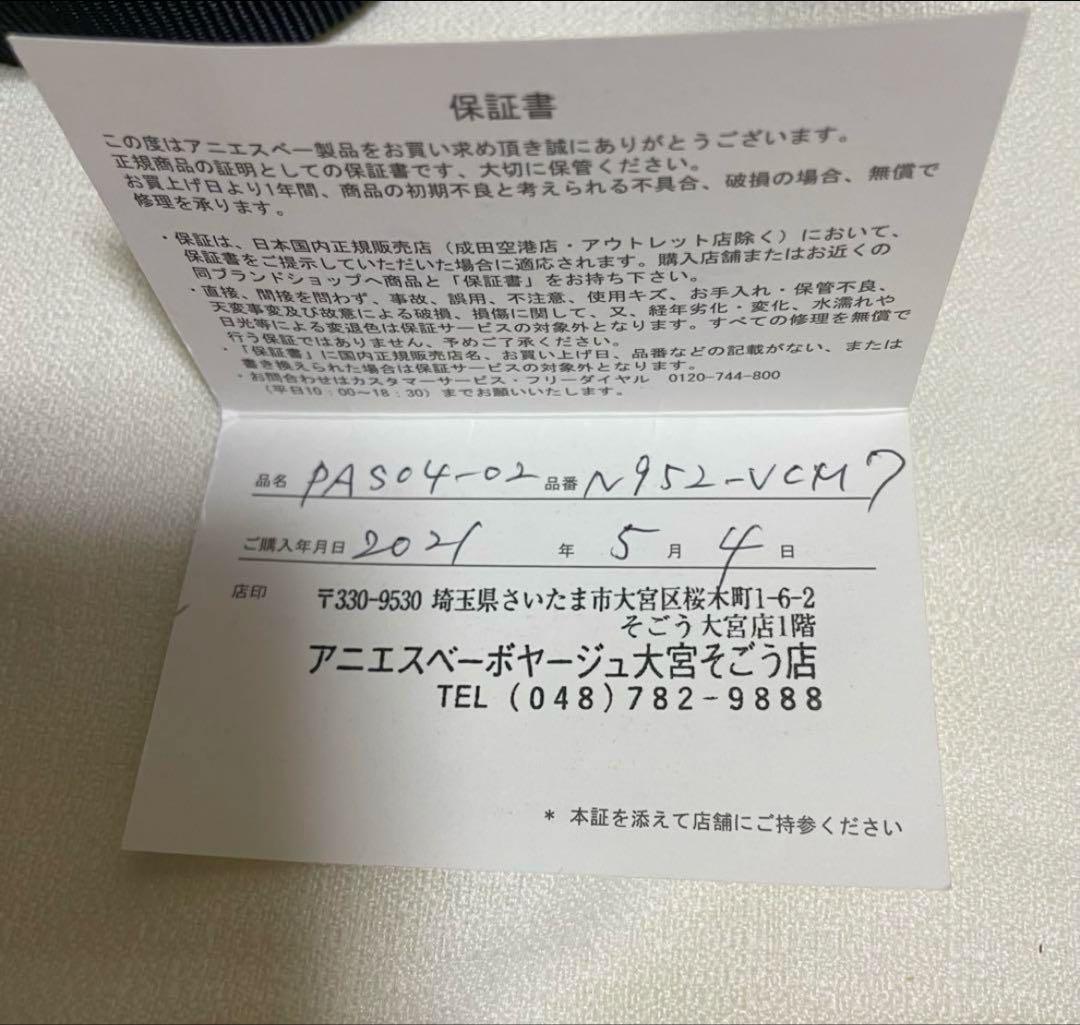 保証書
この度はアニエスベー製品をお買い求め頂き誠にありがとうございます。
正規商品の証明としての保証書です、大切に保管ください。
お買上げ日より1年間、商品の初期不良と考えられる不具合、破損の場合、無償で
修理を承ります。
・保証は、日本国内正規販売店（成田空港店・アウトレット店除く）において、
保証書をご提示していただいた場合に適応されます。購入店舗またはお近くの
同ブランドショップへ商品と「保証書」をお持ち下さい。
・直接、間接を問わず、事故、誤用、不注意、使用キズ、お手入れ・保管不良、
天変事変及び故意による破損、損傷に関して、又、経年劣化・変化、水濡れや
日光等による変退色は保証サービスの対象外となります。すべての修理を無償で
行う保証ではありません、予めご了承ください。
・「保証書」に国内正規販売店名、お買い上げ日、品番などの記載がない、または
書き換えられた場合は保証サービスの対象外となります。
・お問合わせはカスタマーサービス・フリーダイヤル 0120-744-800
（平日10：00～18：30）までお願いいたします。
品名 PAS04-02 品番 N952-VCM7
ご購入年月日 2021 年 5 月 4 日
店印 〒330-9530 埼玉県さいたま市大宮区桜木町1-6-2
そごう大宮店1階
アニエスベーボヤージュ大宮そごう店
TEL (048)782-9888
* 本証を添えて店舗にご持参ください